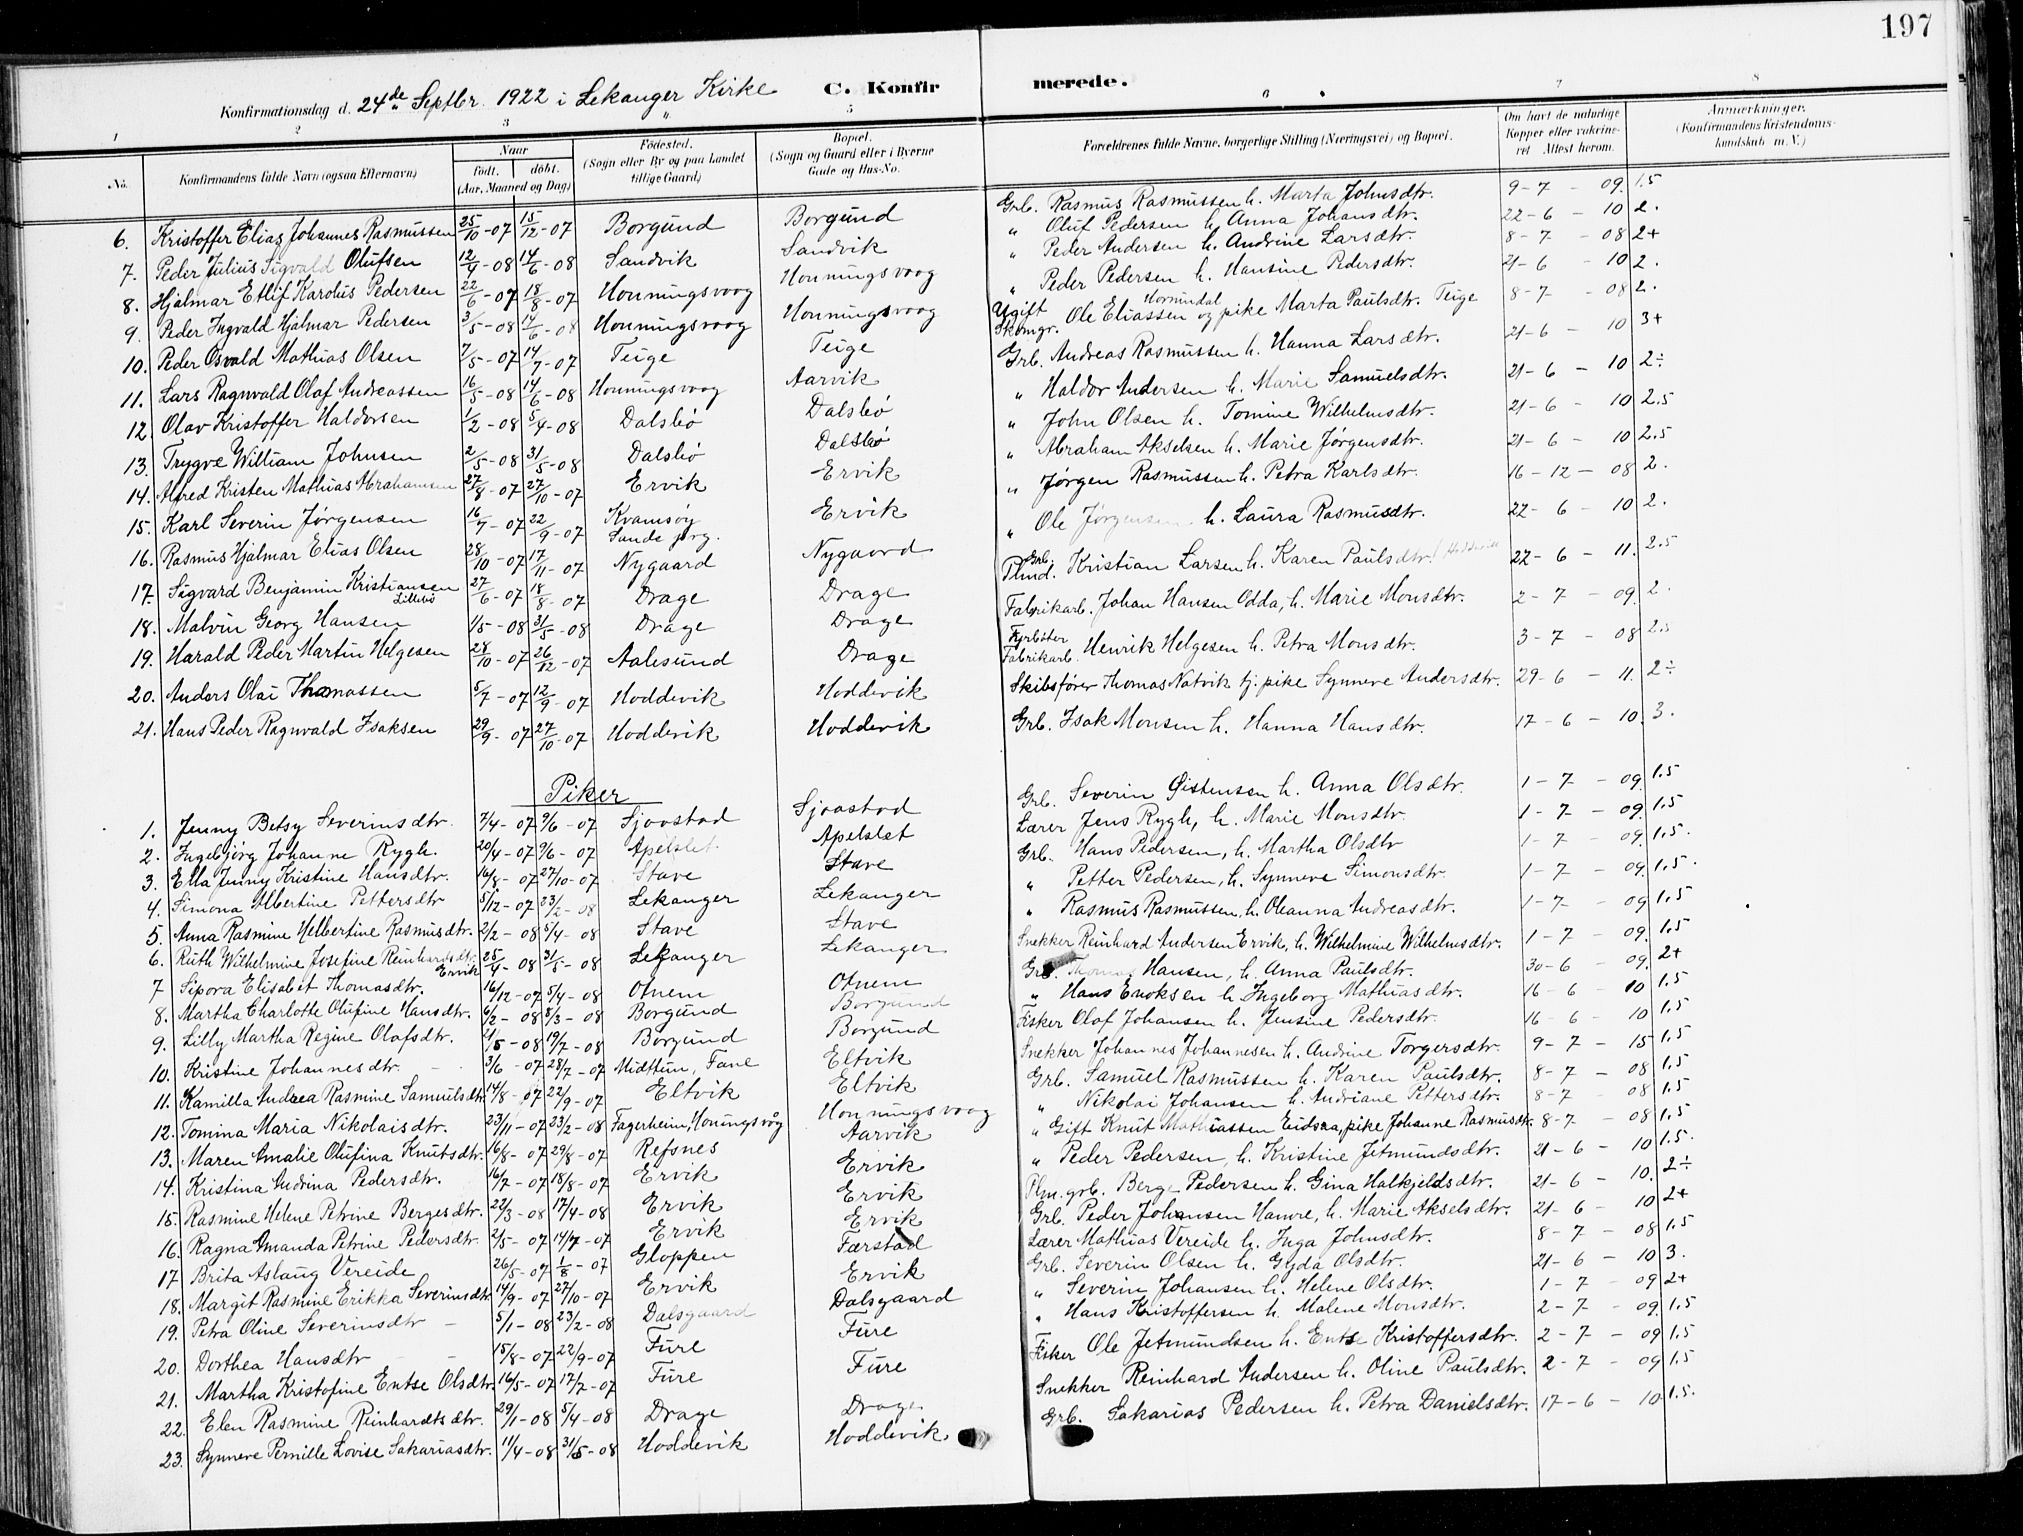 197
Konfirmationsdag d. 24de Septbr. 1922 i Lekanger Kirke C. Konfirmerede.
1 2 3 5 6 7 8
No. Konfirmandens fulde Navn (ogsaa Efternavn) Naar født. døbt. (Aar, Maaned og Dag) Fødested. (Sogn eller By og paa Landet tillige Gaard) Bopæl. (Sogn og Gaard eller i Byerne Gade og Hus-No. Forældrenes fulde Navne, borgerlige Stilling (Næringsvei) og Bopæl. Om havt de naturlige Kopper eller vakcineret Attest herom. Anmærkninger. (Konfirmandens Kristendomskundskab m. V.)
6. Kristoffer Elias Johannes Rasmussen 25/10-07 15/12-07 Borgund Borgund Grb. Rasmus Rasmussen h. Marta Johnsdtr. 9-7-09. 1.5
7. Peder Julius Sigvald Olufsen 12/4-08 14/6-08 Sandvik Sandvik " Oluf Pedersen h. Anna Johansdtr. 22-6-10 2.
8. Hjalmar Etlif Karolus Pedersen 22/6-07 18/8-07 Honningsvoog Honningsvoog " Peder Andersen h. Andrine Larsdtr. 8-7-08 2+
9. Peder Ingvald Hjalmar Pedersen 3/5-08 14/6-08 Honningsvoog Honningsvoog " Peder Pedersen h. Hansine Pedersdtr. 21-6-10 2.
10. Peder Osvald Mathias Olsen 7/5-07 14/7-07 Teige Teige Ugift Skomgr. Ole Eliassen Hornindal og pike Marta Paulsdtr. Teige 8-7-08 2.
11. Lars Ragnvald Olaf Andreassen 16/5-08 14/6-08 Honningsvoog Aarvik Grb. Andreas Rasmussen h. Hanna Larsdtr. 21-6-10 3+
12. Olav Kristoffer Haldorsen 1/2-08 5/4-08 Dalsbø Dalsbø " Haldor Andersen h. Marie Samuelsdtr. 21-6-10 2÷
13. Trygve William Johnsen 2/5-08 31/5-08 Dalsbø Dalsbø " John Olsen h. Tomine Wilhelmsdtr. 21-6-10 2.5
14. Alfred Kristen Mathias Abrahamsen 27/8-07 27/10-07 Ervik Ervik " Abraham Akselsen h. Marie Jørgensdtr. 21-6-10 2.5
15. Karl Severin Jørgensen 16/7-07 22/9-07 Kvamsøy Sande prg. Ervik " Jørgen Rasmussen h. Petra Karlsdtr. 16-12-08 2.
16. Rasmus Hjalmar Elias Olsen 28/10-07 17/11-07 Nygaard Nygaard " Ole Jørgensen h. Laura Rasmusdtr. 22-6-10 2.
17. Sigvard Benjamin Kristiansen Lillebø 27/6-07 18/8-07 Drage Drage Grb. Plmd. Kristian Larsen h. Karen Paulsdtr. 22-6-11. 2.5
18. Malvin Georg Hansen 1/5-08 31/5-08 Drage Drage Fabrikarb. Johan Hansen Odda, h. Marie Monsdtr. 2-7-09. 2.
19. Harald Peder Martin Helgesen 28/10-07 26/12-07 Aalesund Drage Fyrbøter Fabrikarb. Henrik Helgesen h. Petra Monsdtr. 3-7-08 2.5
20. Anders Olai Thomassen 5/7-07 12/9-07 Hoddevik Hoddevik Skibsfører Thomas Natvik tj. pike Synneve Andersdtr. 29-6-11. 2÷
21. Hans Peder Ragnvald Isaksen 29/9-07 27/10-07 Hoddevik Hoddevik Grb. Isak Monsen h. Hanna Hansdtr. 17-6-10. 3.
Piker
1. Jenny Betsy Severinsdtr. 7/4-07 9/6-07 Sjoastad Sjoastad Grb. Severin Øistensen h. Anna Olsdtr. 1-7-09. 1.5
2. Ingebjørg Johanne Rygh. 20/4-07 9/6-07 Apelslet Apelslet Lærer Jens Rygh, h. Marie Monsdtr. 1-7-09. 1.5
3. Ella Jenny Kristine Hansdtr. 16/8-07 27/10-07 Stave Stave Grb. Hans Pedersen, h. Martha Olsdtr 1-7-09. 1.5.
4. Simona Albertine Pettersdtr 5/12-07 23/2-08 Lekanger Lekanger " Petter Pedersen, h. Synneve Simonsdtr. 1-7-09. 1.5.
5. Anna Rasmine Helbertine Rasmusdtr. 2/2-08 5/4-08 Stave Stave " Rasmus Rasmussen, h. Oleanna Andreasdtr. 1-7-09 1.5
6. Ruth Wilhelmine Josefine Reinhardsdtr. Ervik 25/4-08 31/5-08 Lekanger Lekanger Snekker Reinhard Andersen Ervik, h. Wilhelmine Wilhelmsdtr. 1-7-09. 1.5
7 Sipora Elisabet Thomasdtr. 16/12-07 5/4-08 Otnem Otnem Grb. Thomas Hansen, h. Anna Paulsdtr. 30-6-09. 2+
8. Martha Charlotte Olufine Hansdtr. 6/2-08 8/3-08 Borgund Borgund " Hans Enoksen h. Ingeborg Mathiasdtr. 16-6-10 1.5
9. Lilly Martha Regine Olafsdtr. 21/5-08 19/7-08 Borgund Borgund Fisker Olaf Johansen h. Jensine Pedersdtr. 16-6-10 1.5
10. Kristine Johannesdtr. 3/6-07 28/7-07 Midttun, Fane Eltvik Snekker Johannes Johannesen h. Andrine Torgersdtr. 9-7-15 1.5
11. Kamilla Andrea Rasmine Samuelsdtr. 14/8-07 22/9-07 Eltvik Eltvik Grb. Samuel Rasmussen h. Karen Paulsdtr. 8-7-08 1.5
12. Tomina Maria Nikolaisdtr. 23/11-07 23/2-08 Fagerheim, Honingsvåg Honningsvoog " Nikolai Johansen h. Andriane Pettersdtr. 8-7-08 1.5
13. Maren Amalie Olufina Knutsdtr. 16/8-07 29/8-07 Refsnes Aarvik " Gift Knut Mathiassen Eidsaa, pike Johanne Rasmusdtr. 8-7-08 1.5
14. Kristina Andrina Pedersdtr. 16/7-07 18/8-07 Ervik Ervik " Peder Pedersen, h. Kristine Jetmundsdtr. 21-6-10 1.5.
15. Rasmine Helene Petrine Bergesdtr. 22/3-08 17/4-08 Ervik Ervik Plm. grb. Berge Pedersen h. Gina Halkjeldsdtr. 21-6-10. 2÷
16. Ragna Amanda Petrine Pedersdtr. 2/5-07 14/7-07 Ervik Ervik Grb. Peder Johansen Hamre, h. Marie Akselsdtr. 21-6-10 2+
17 Brita Aslaug Vereide 26/5-07 1/8-07 Gloppen Færstad Lærer Mathias Vereide h. Inga Johnsdtr. 8-7-08 1.5
18. Margit Rasmine Erikka Severinsdtr. 14/9-07 27/10-07 Ervik Ervik Grb. Severin Olsen h. Gyda Olsdtr. 21-6-10 3.
19. Petra Oline Severinsdtr 5/1-08 23/2-08 Dalsgaard Dalsgaard " Severin Johansen h. Helene Olsdtr. 1-7-09 2+
20. Dorthea Hansdtr 15/8-07 22/9-07 Fure Fure " Hans Kristoffersen h. Malene Monsdtr. 2-7-09. 1.5
21. Martha Kristofine Entse Olsdtr. 16/5-07 17/7-07 Fure Fure Fisker Ole Jetmundsen h. Entse Kristoffersdtr. 2-7-09 1.5
22. Elen Rasmine Reinhardtsdtr. 29/1-08 5/4-08 Drage Drage Snekker Reinhard Andersen h. Oline Paulsdtr. 2-7-09 1.5
23. Synneve Pernille Lovise Sakariasdtr. 11/4-08 31/5-08 Hoddevik Hoddevik Grb. Sakarias Pedersen h. Petra Danielsdtr. 17-6-10 1.5.